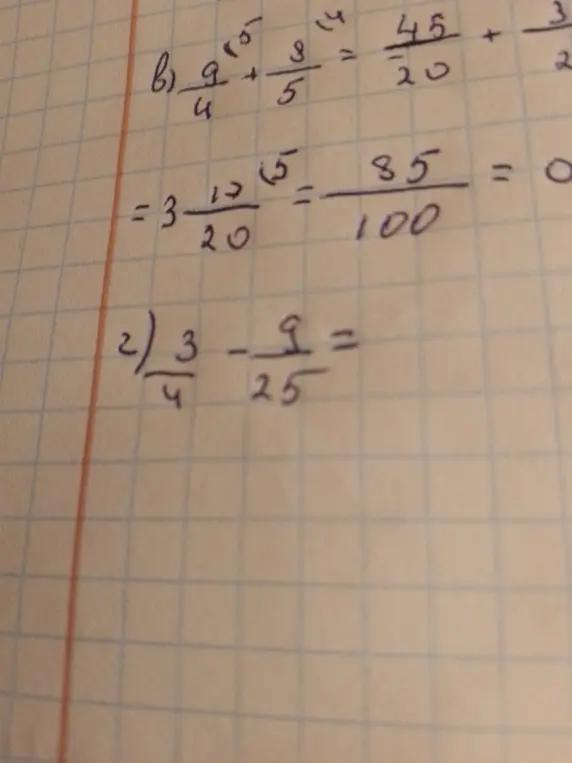 в) 9/4 (5 + 8/5 (4 = 45/20 + 3/2
= 3 17/20 (5 = 85/100 = 0
г) 3/4 - 9/25 =